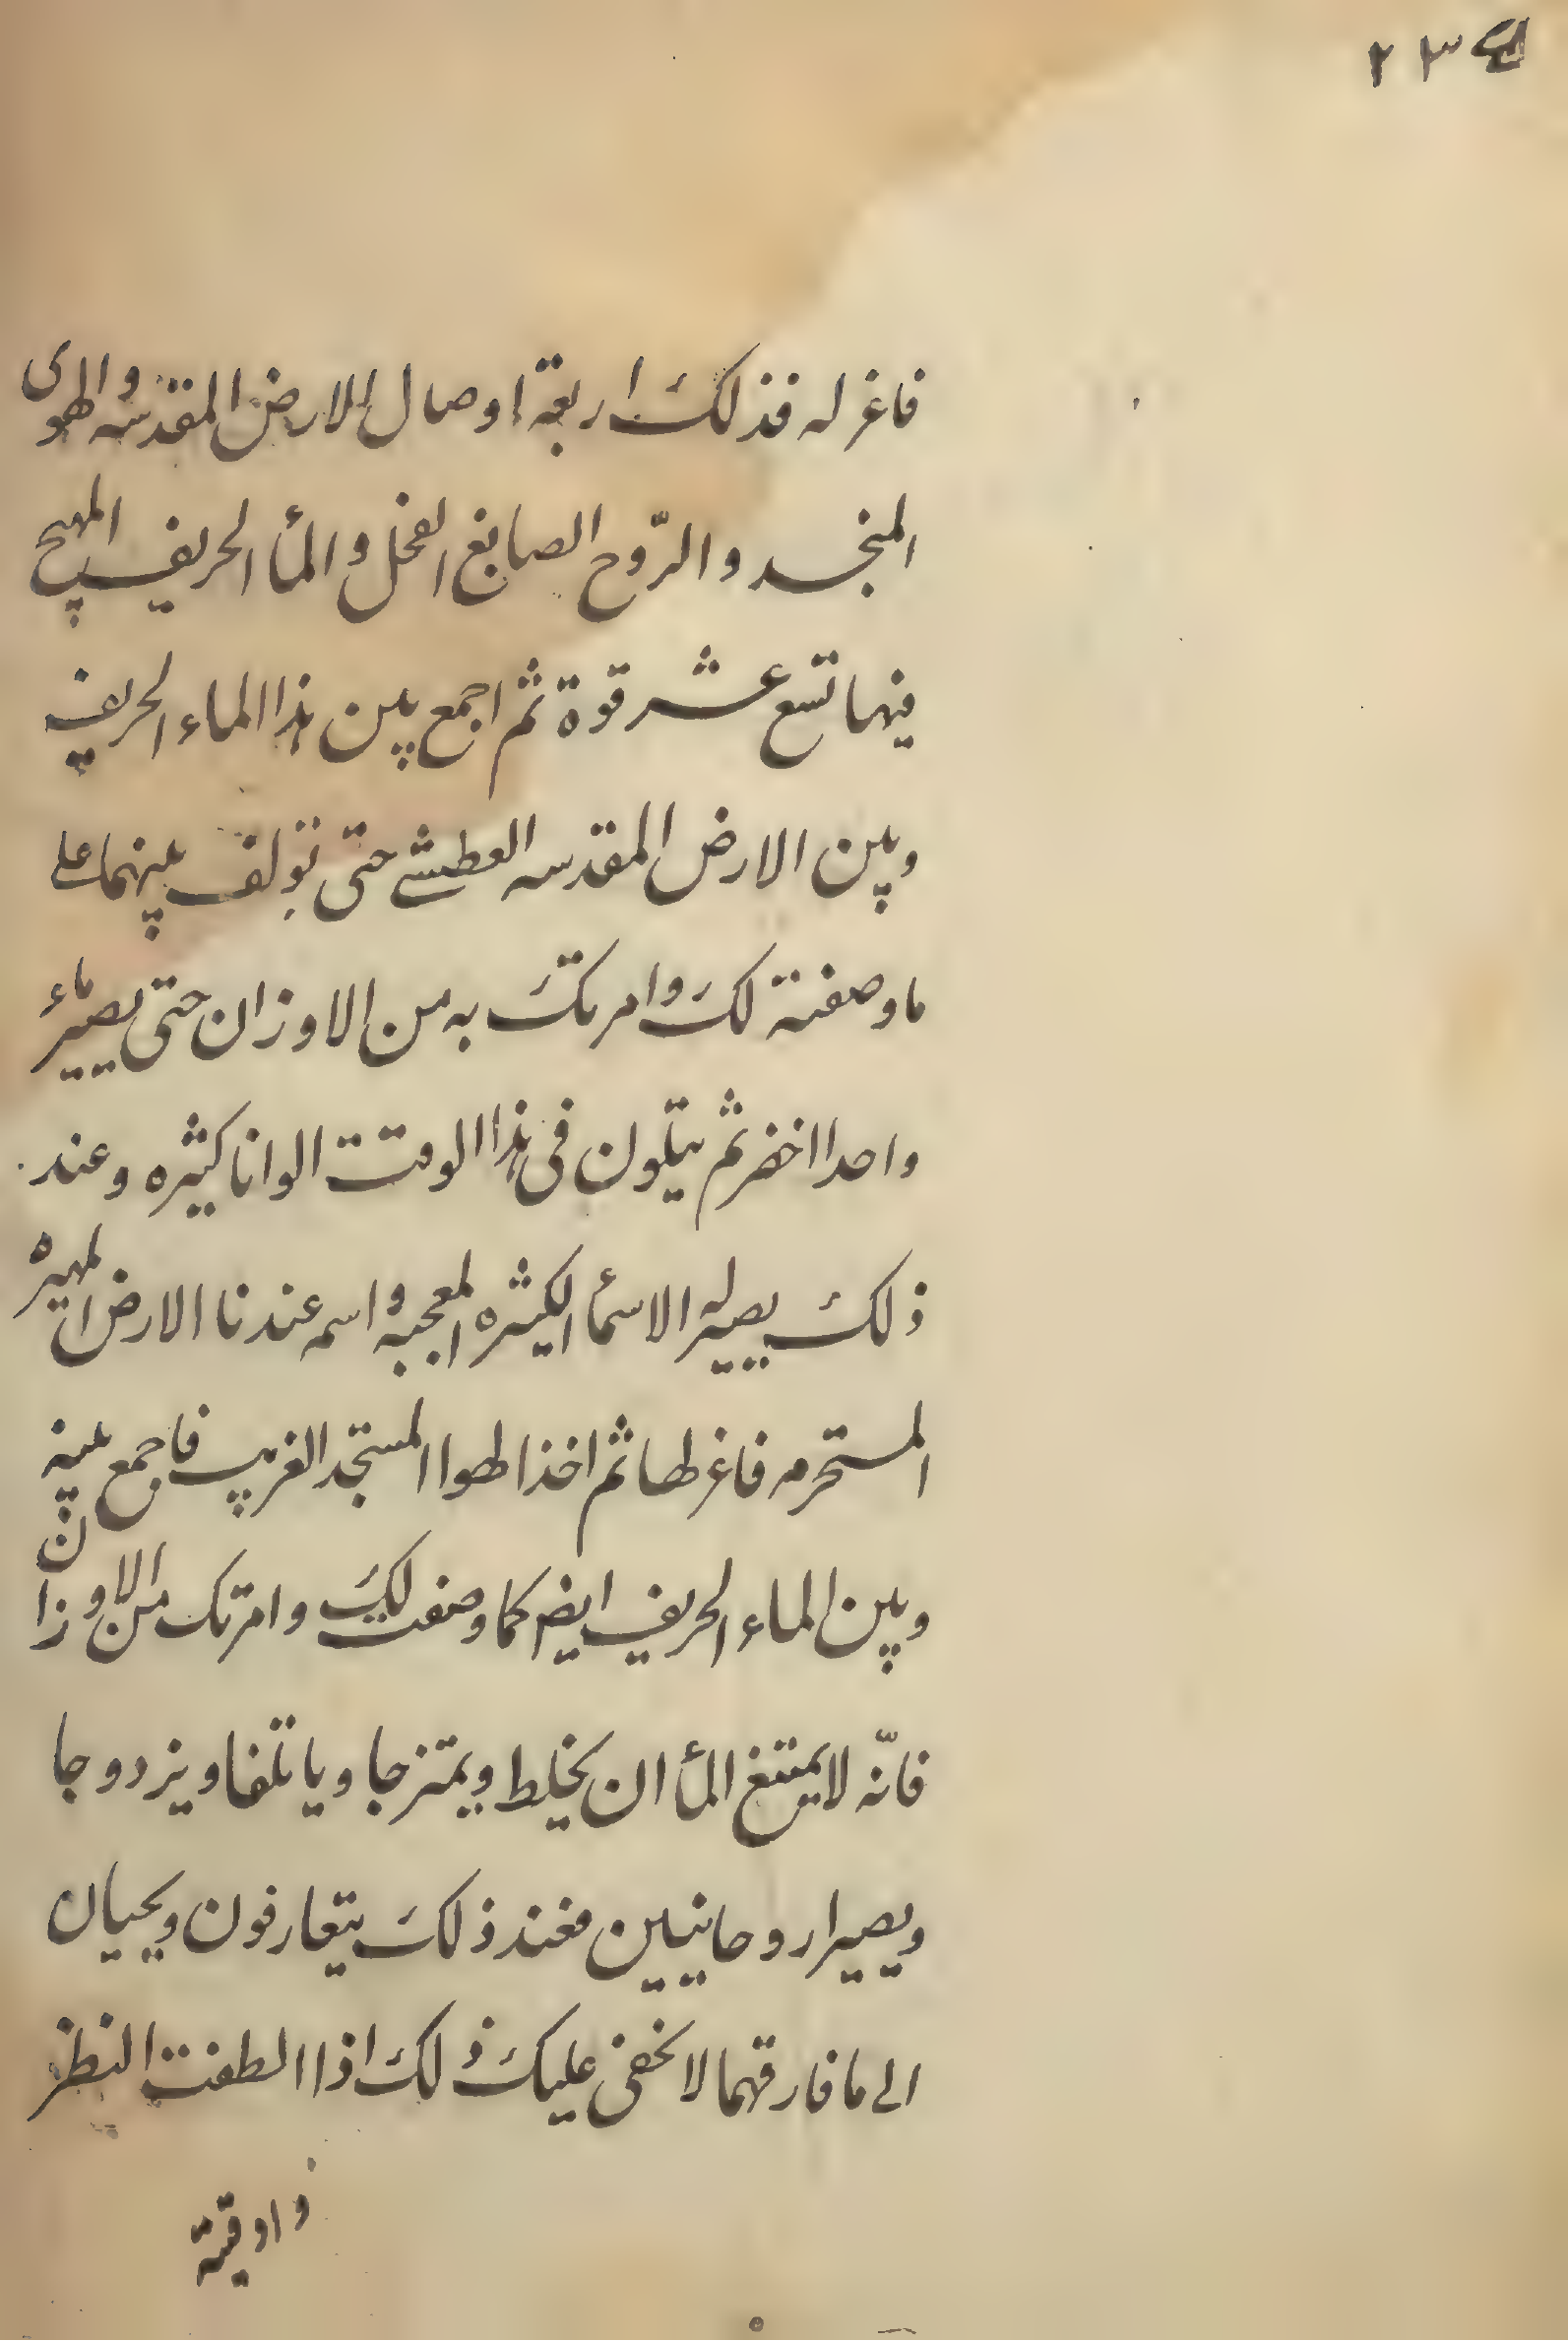 ٢٣
فاغزله فذلك اربعة اوصال الارض المقدسه والهوى
المنجسد والرّوح الصابغ الفحل والمأ الحريف المهيج
فيهما تسع عشر قوة ثم اجمع بين هذا الماء الحريف
وبين الارض المقدسه العطشى حتى تولف بينهما على
ما وصفتة لك وامرتك به من الاوزان حتى يصير ماء
واحدا اخضر ثم يتلون فى هذا الوقت الوانا كثيره وعند
ذلك يصير له الاسمأ الكثيره المعجبه واسمه عندنا الارض
المستحرمه فاغرلها ثم اخذ الهوا المستجد الغريب فاجمع بينه
وبين الماء الحريف ايض كما وصفت لك وامرتك من الاوزان
فانّه لا يمتنع المأ ان يخلط ويمتزجا وياتلفا ويزدوجا
ويصيرا روحانيين فعند ذلك يتعارفون ويحيان
الى ما فارقهما لا تخفى عليك ذلك اذا الطفت النظر
واوقية